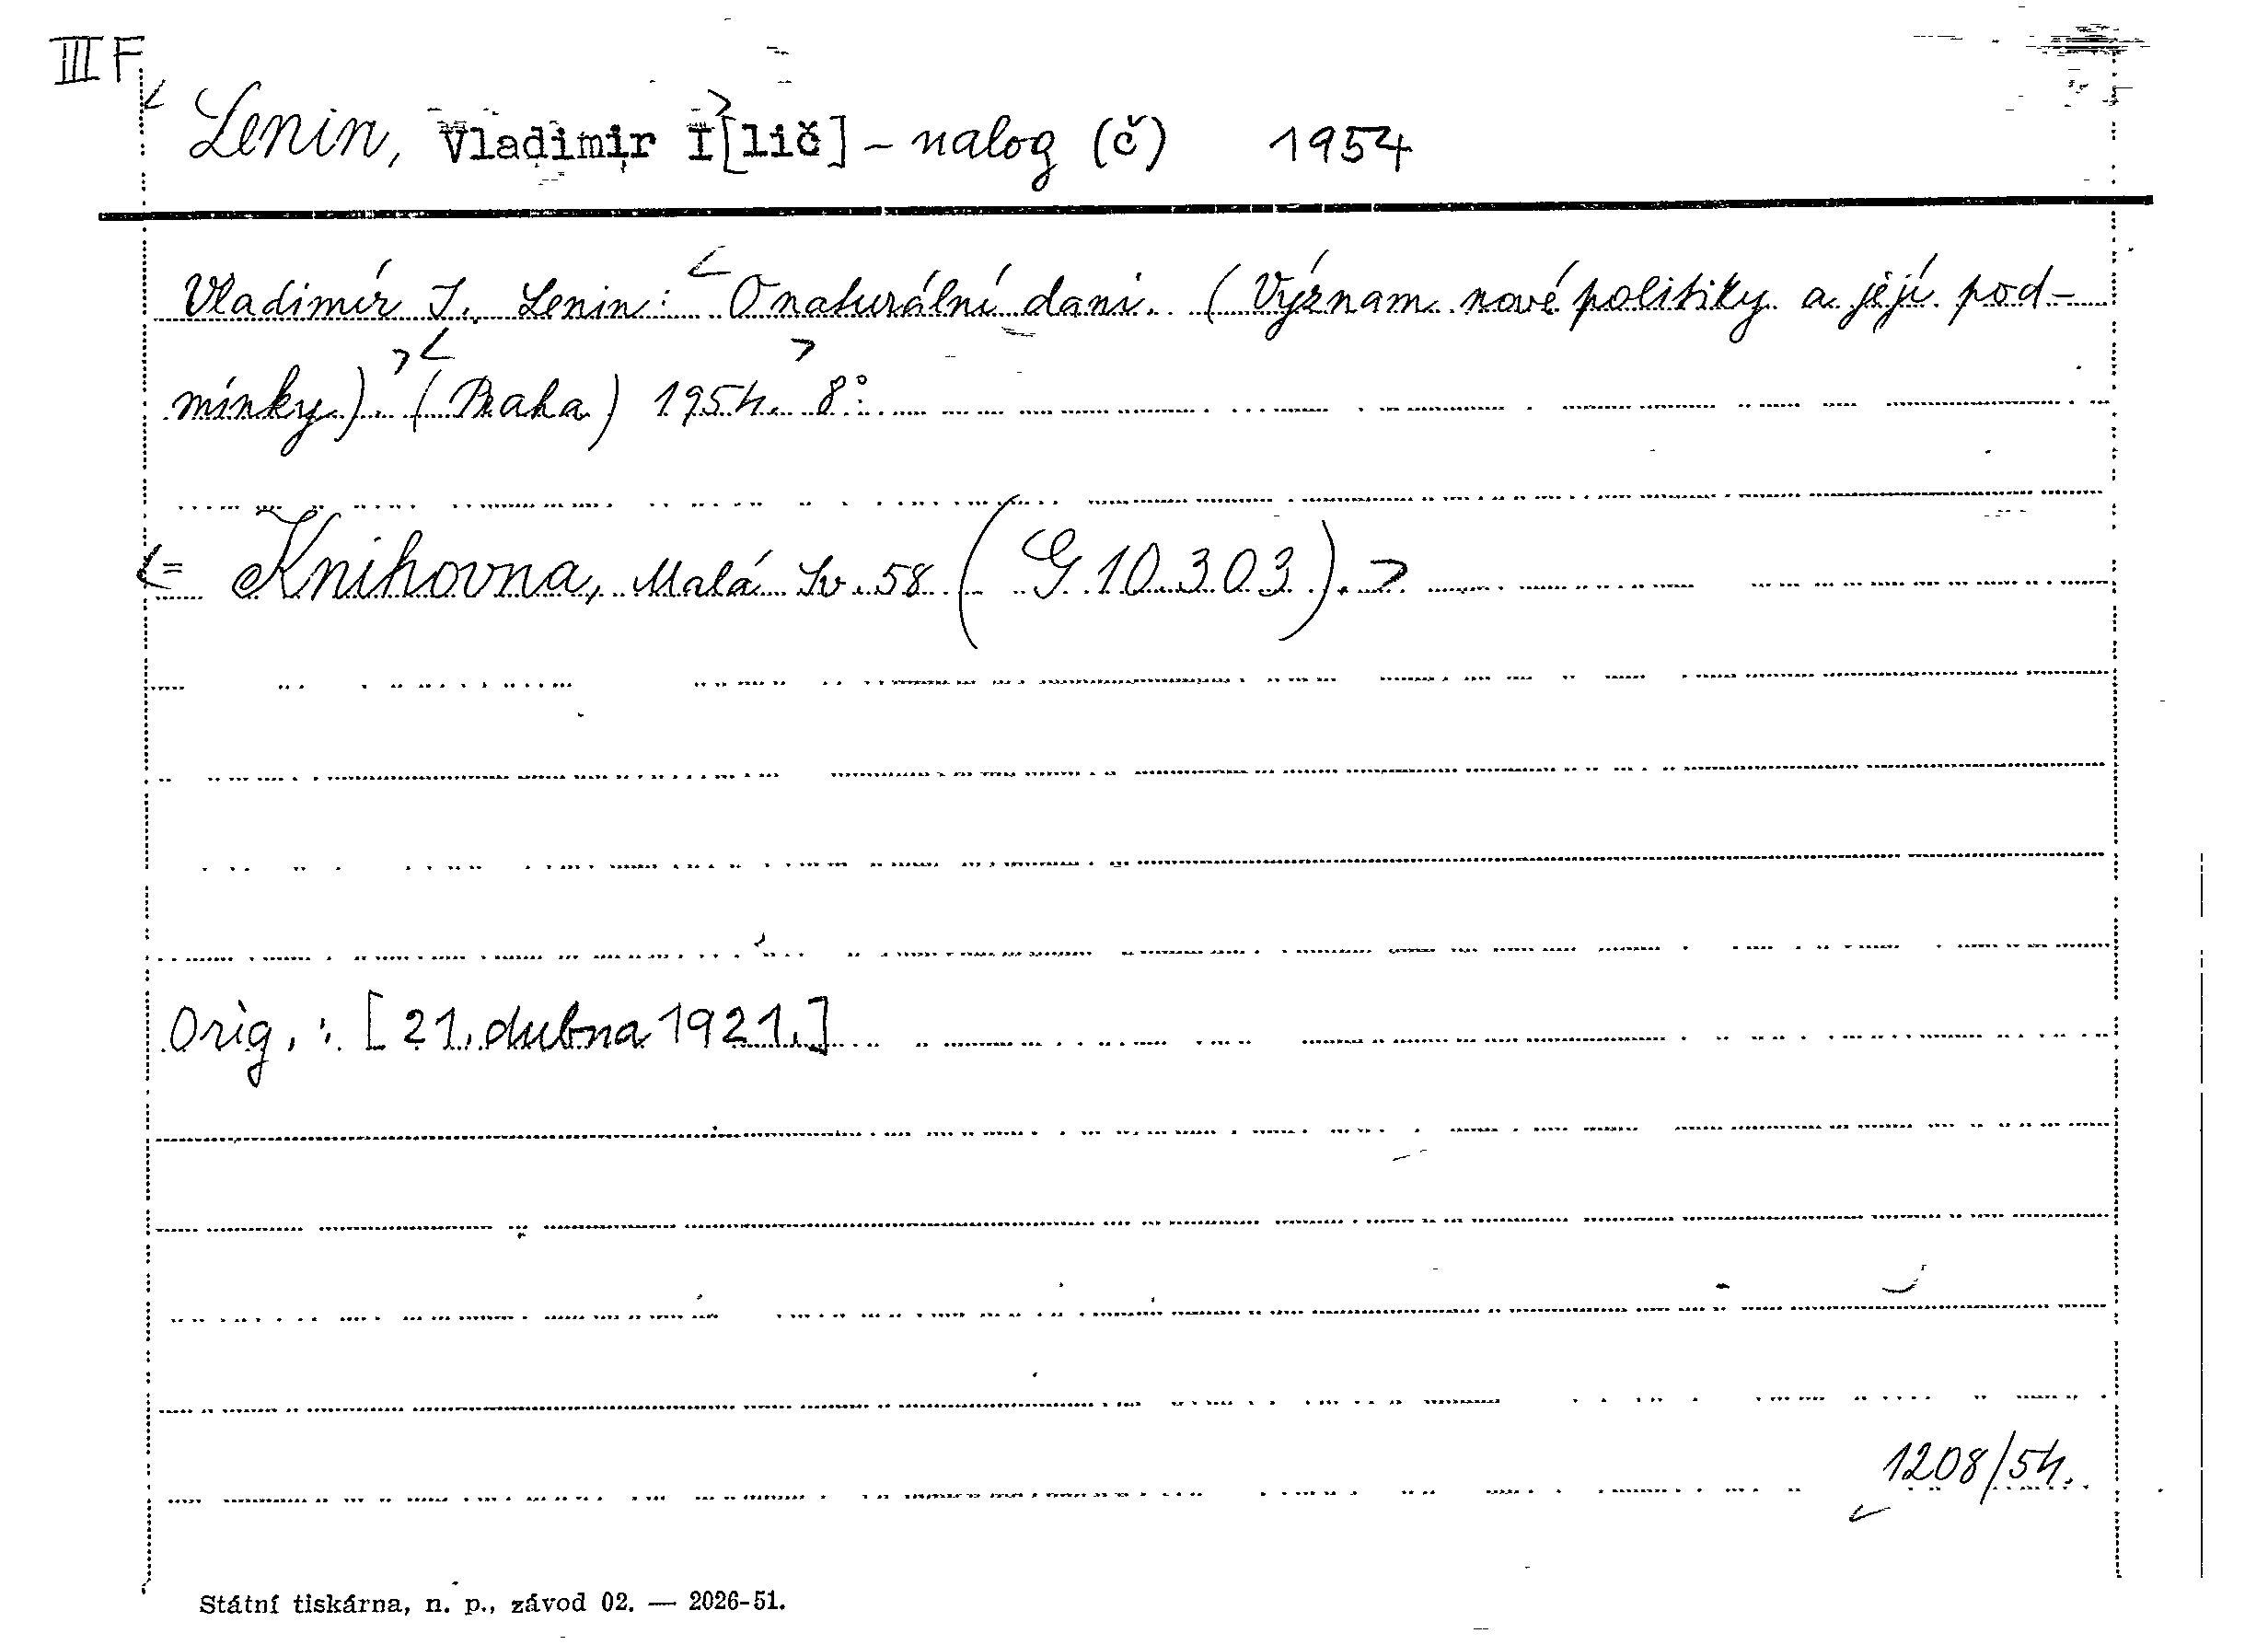 III F
Lenin, Vladimir I[lič] – nalog (č) 1954
Vladimír I. Lenin: O naturální dani. (Význam nové politiky a její pod-
mínky). (Praha) 1954. 8°.
= Knihovna, Malá Sv. 58 (G 10.303).
Orig.: [21. dubna 1921.]
1208/54.
Státní tiskárna, n. p., závod 02. — 2026-51.